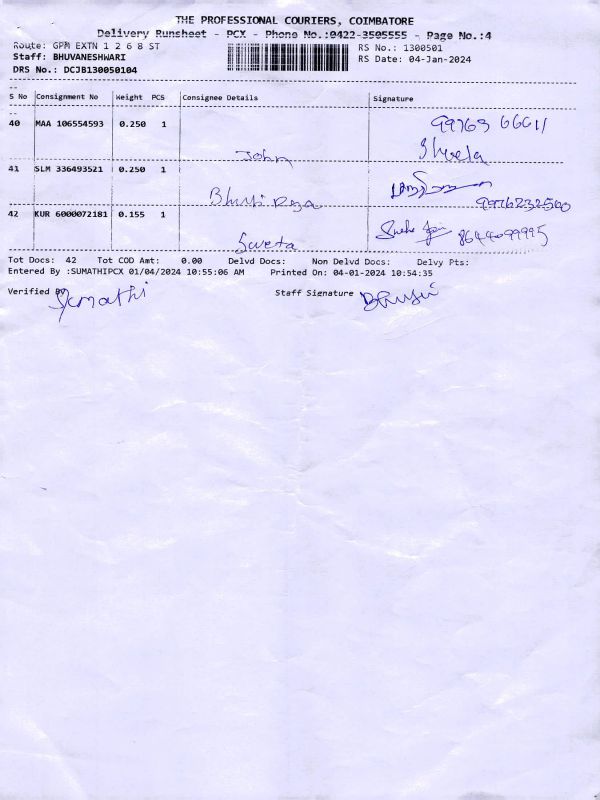 THE PROFESSIONAL COURIERS, COIMBATORE
Delivery Runsheet - PCX - Phone No.:0422-3505555 - Page No.:4
Route: GPM EXTN 1 2 6 8 ST
RS No.: 1300501
Staff: BHUVANESHWARI
RS Date: 04-Jan-2024
DRS No.: DCJB130050104
S No Consignment No Weight PCS Consignee Details Signature
40 MAA 106554593 0.250 1
99763 66611
John Shwela
41 SLM 336493521 0.250 1
9976232500
42 KUR 6000072181 0.155 1
8644099995
Sweta
Tot Docs: 42 Tot COD Amt: 0.00 Delvd Docs: Non Delvd Docs: Delvy Pts:
Entered By :SUMATHIPCX 01/04/2024 10:55:06 AM Printed On: 04-01-2024 10:54:35
Verified By Staff Signature